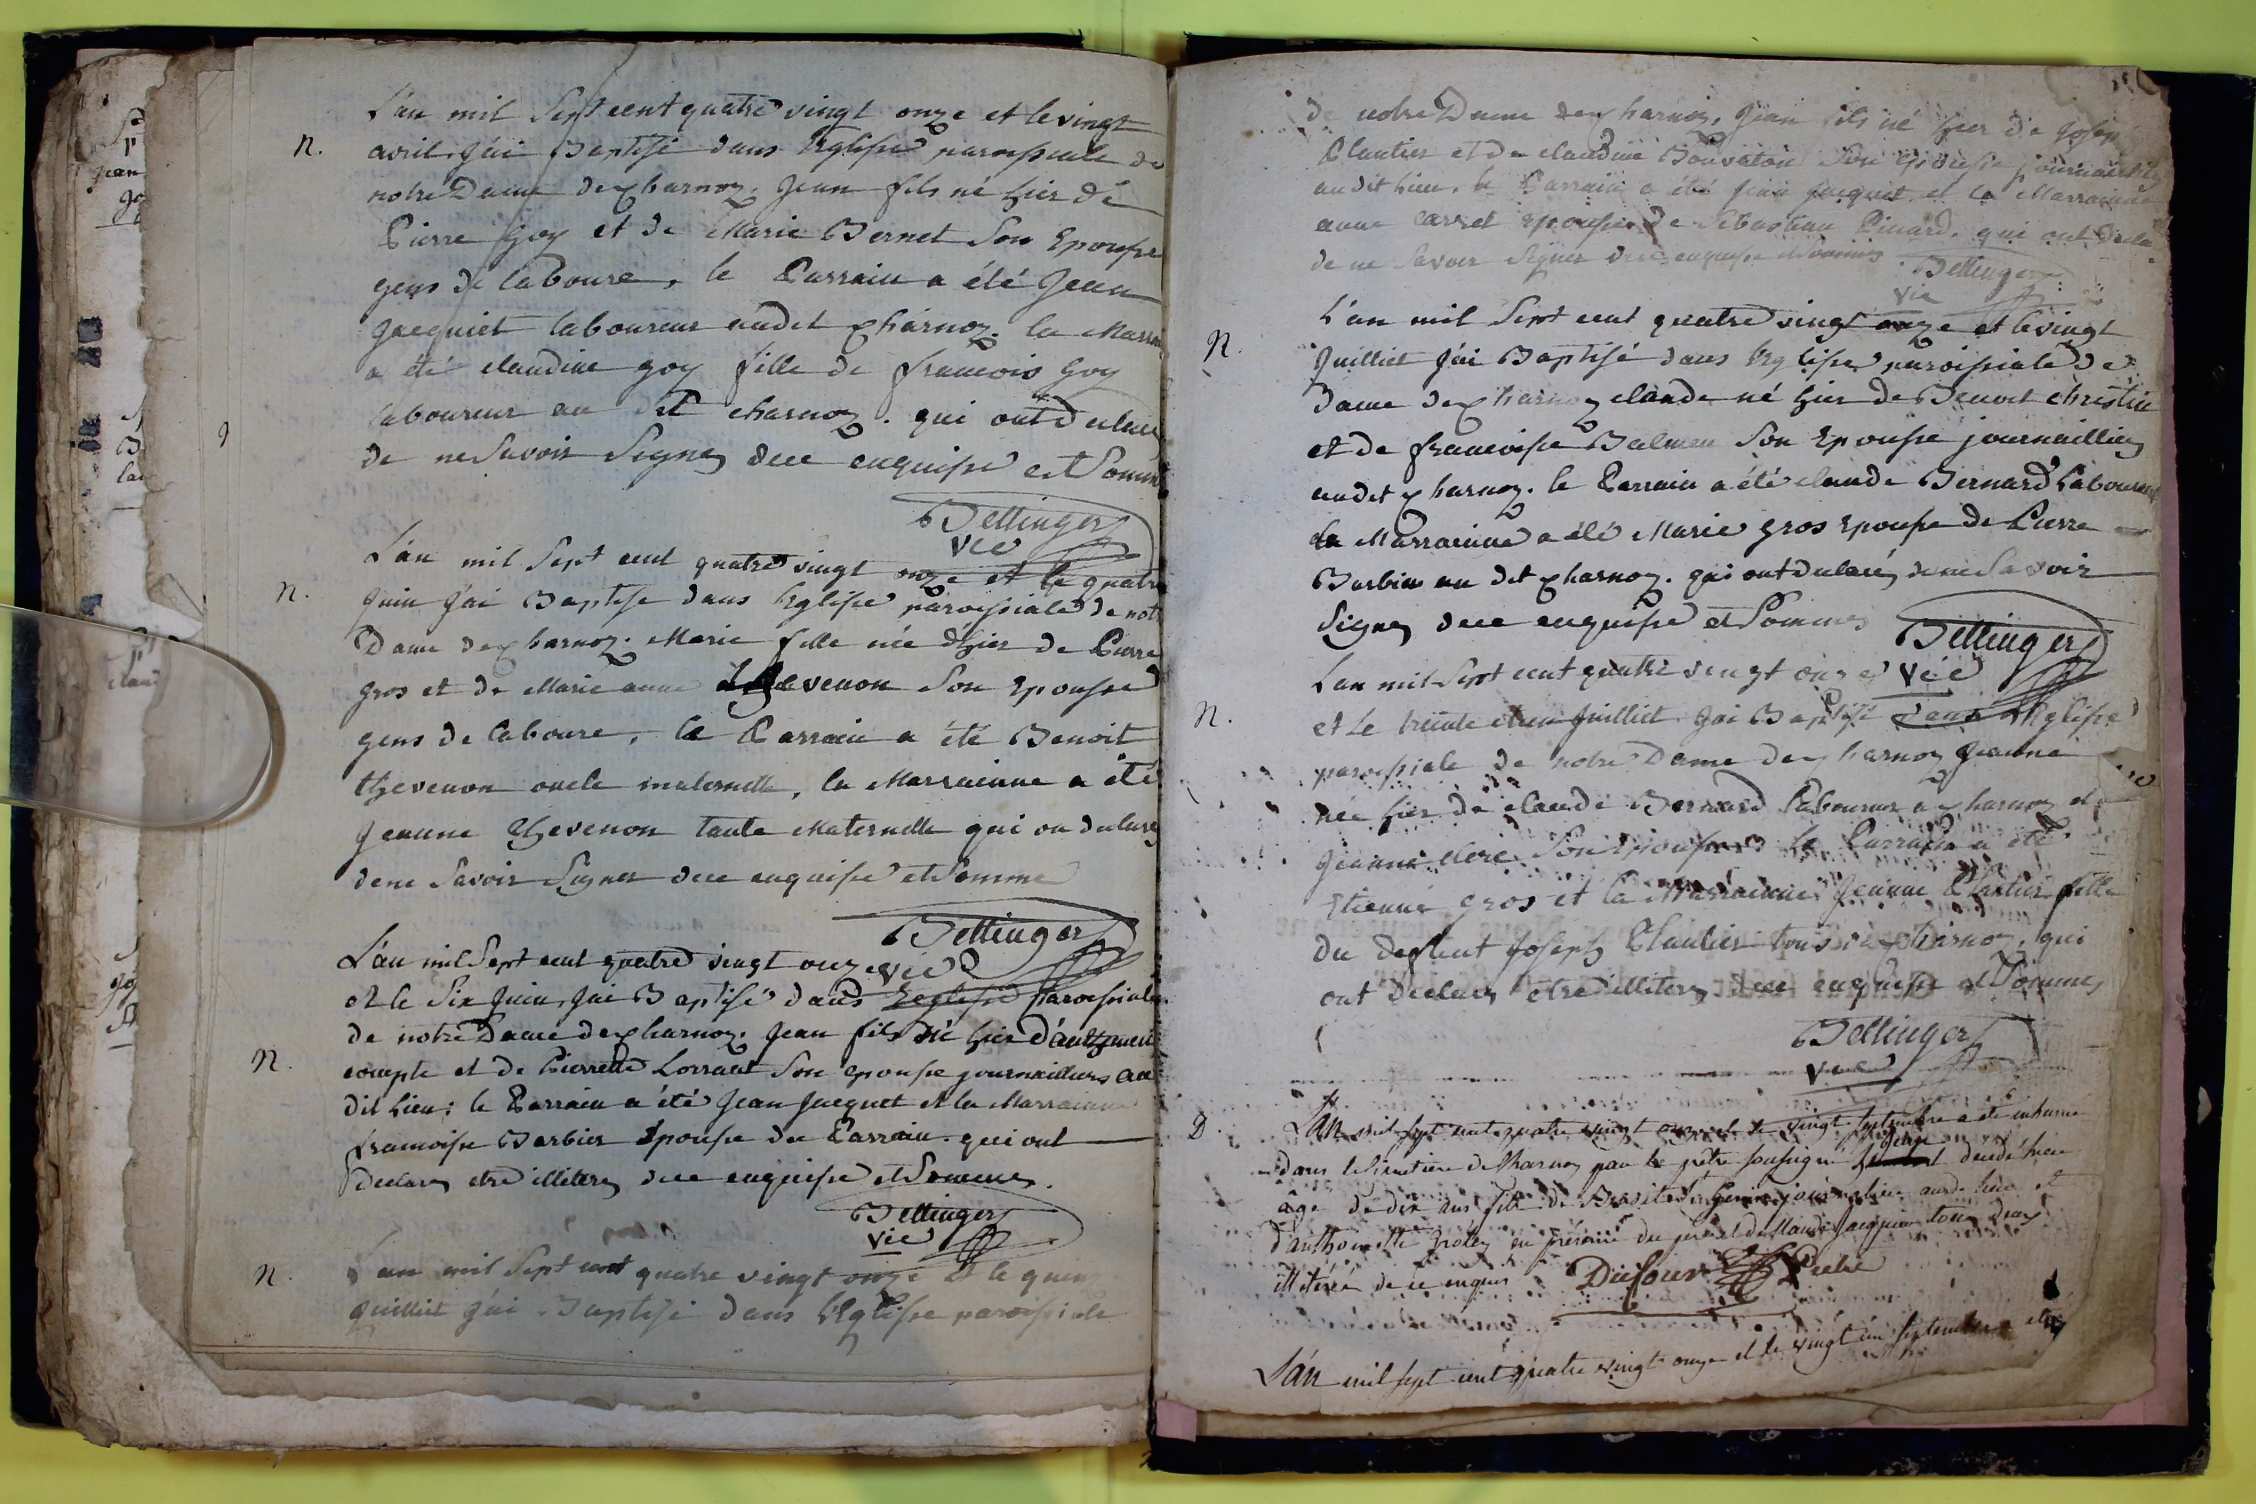 L'an mil Sept cent quatre vingt onze et le vingt
n.
avril, j'ai Baptisé dans l'Eglise paroissiale de
notre Dame de charnoz. Jean fils né hier de
Pierre Goy et de Marie Bernet Son Epouse
gens de laboure, le Parrain a été Jean
Jacquiet laboureur audit charnoz. la Marrai
a été claudine goy fille de francois Goy
laboureur au dit charnoz. qui ont declaré
de ne Savoir Signer dece enquise et Sommé
Bettinger
vic
L'an mil Sept cent quatre vingt onze et le quatre
n.
Juin j'ai Baptise dans l'Eglise paroissiale de notr
Dame de charnoz. Marie fille née d'hier de Pierre
gros et de Marie anne thevenon Son Epouse
gens de laboure, le Parrain a été Benoit
thevenon oncle maternelle, la Marrainne a été
Jeanne thevenon tante Maternelle qui on declaré
de ne Savoir Signer dece enquise et Sommé
Bettinger
vic
L'an mil Sept cent quatre vingt onze
et le Six Juin, j'ai Baptisé dans l'Eglise Paroissiale
de notre Dame de charnoz. Jean fils né hier
n.
compte et de Pierrette Lorrant Son epouse journailliers au
dit Lieu; le Parrain a été Jean Jacquet et la Marrainne
francoise Barbier Epouse du Parrain. qui ont
declaré etre illiteré dece enquise et Sommé.
Bettinger
vic
n.
L'an mil Sept cent quatre vingt onze et le quinz
Juilliet j'ai Baptisé dans l'Eglise paroissiale
de notre Dame de charnoz, Jean fils né hier de Joseph
Plantier et de claudine Bouvaton Son Epouse journaillier
audit Lieu. le Parrain a été Jean Jacquet et la Marrainne
anne carret epouse de Sebastian Pinard. qui ont decla
de ne Savoir Signer dece enquise et Sommé
Bettinger
vic
L'an mil Sept cent quatre vingt onze et le vingt
n.
Juilliet j'ai Baptisé dans l'Eglise paroissiale de
Dame de charnoz claude né hier de Benoit christin
et de francoise Balmon Son Epouse journaillier
audit charnoz. le Parrain a été claude Bernard Laboureur
la Marrainne a été Marie gros Epouse de Pierre
Barbier au dit charnoz. qui ont declaré de ne Savoir
Signer dece enquise et Sommé
Bettinger
vic
L'an mil Sept cent quatre vingt onze
n.
et Le trente et un Juilliet j'ai Baptisé dans l'Eglise
paroissiale de notre Dame de charnoz Jeanne
née hier de claude Bernard Laboureur a charnoz et
Jeanne clerc Son Epouse le Parrain a été
Etienne gros et la Marrainne Jeanne Plantier fille
du deffunt Joseph Plantier tous de charnoz, qui
ont declaré etre illiteré dece enquise et Sommé
Bettinger
vic
D.
L'an mil sept cent quatre vingt onze et le vingt septembre a été inhumé
dans le cimetiere de Charnoz par le prêtre soussigné decedé hier
âgé de dix ans fils de journalier audit lieu et
d'anthoinette en présence du pere et de Claude Jacquier tous deux
illiteré de ce enquis Dufour Prêtre
L'an mil sept cent quatre vingt onze et le vingt un septembre